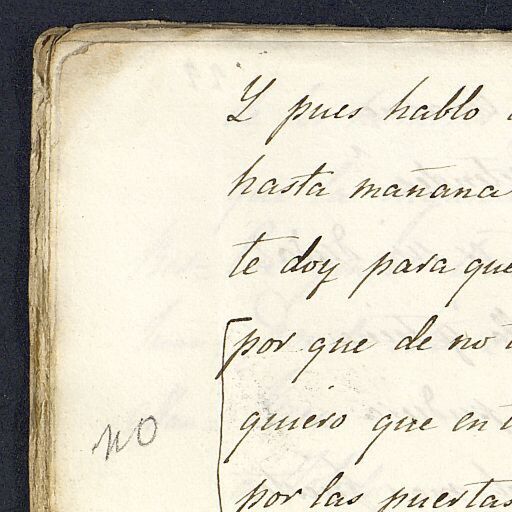 Y pues hablo
hasta mañana
te doy para que
por que de no
no
quiero que en
por las puertas